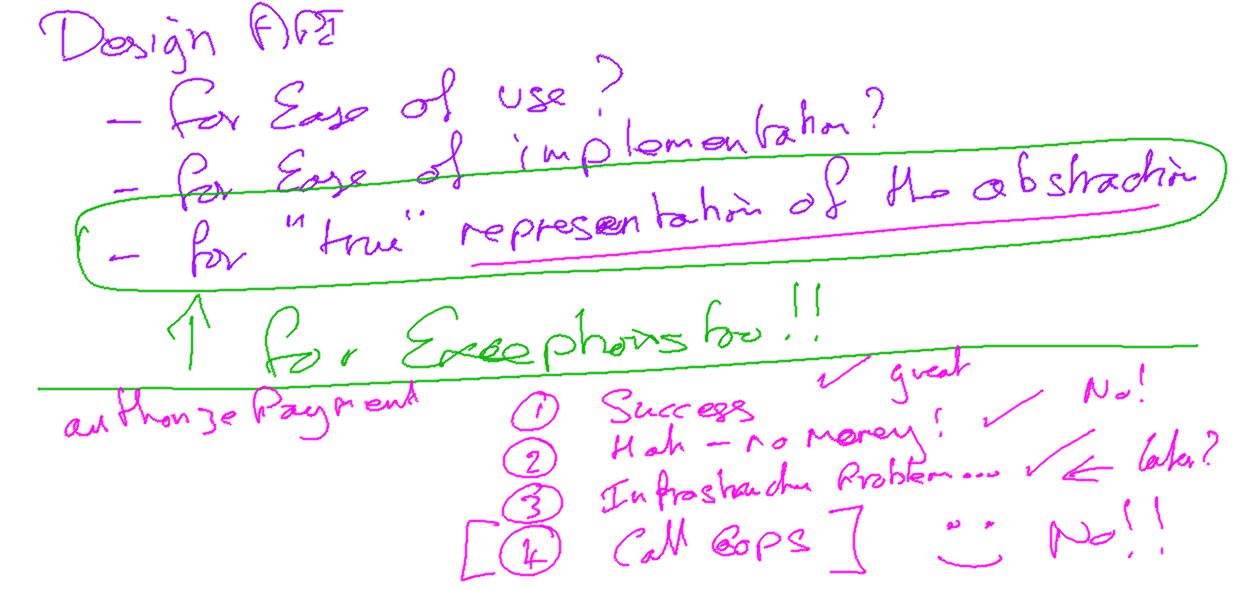 Design API
- for Ease of use?
- for Ease of implementation?
- for "true" representation of the abstraction
↑ for Exceptions too!!
authorizePayment
① Success ✓ great
② Hah - no money! ✓ No!
③ Infrastructure Problem... ✓ ← later?
[④ Call Cops] No!!